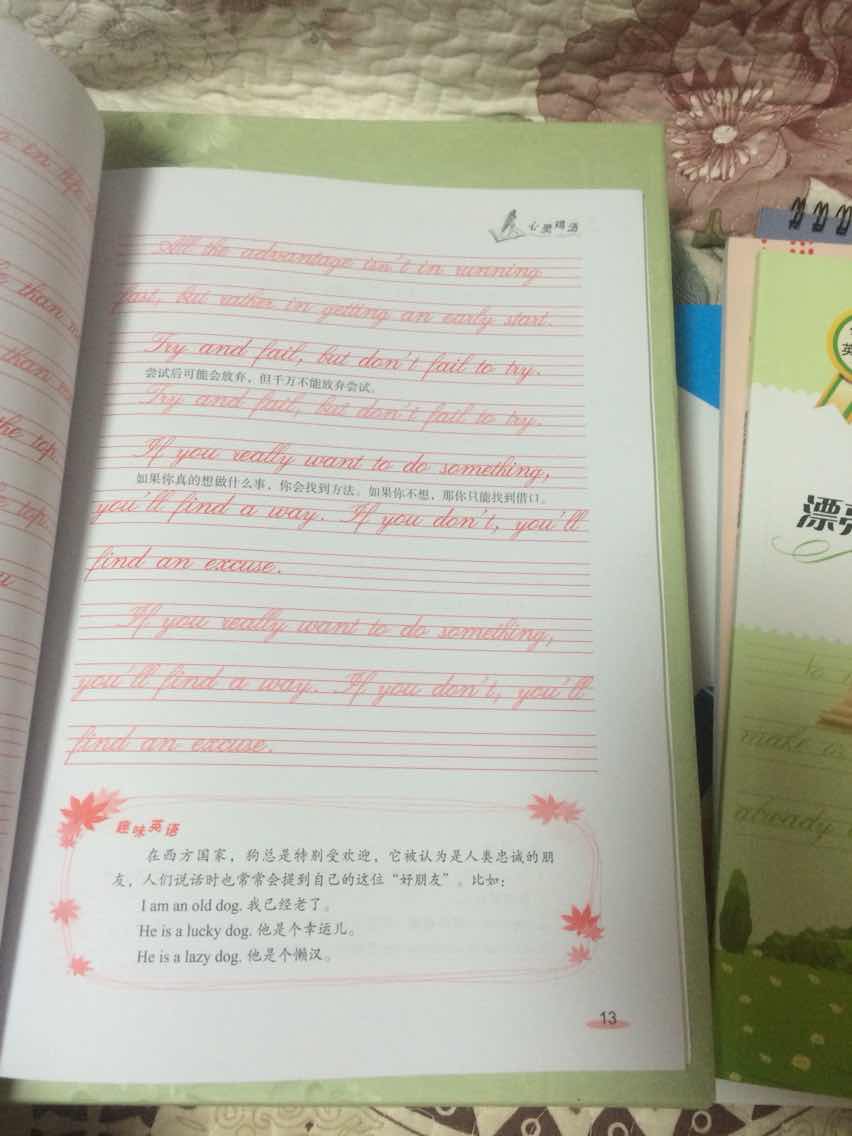 心灵鸡汤
All the advantage isn't in running
fast, but rather in getting an early start.
Try and fail, but don't fail to try.
尝试后可能会放弃，但千万不能放弃尝试。
Try and fail, but don't fail to try.
If you really want to do something,
如果你真的想做什么事，你会找到方法。如果你不想，那你只能找到借口。
you'll find a way. If you don't, you'll
find an excuse.
If you really want to do something,
you'll find a way. If you don't, you'll
find an excuse.
趣味英语
在西方国家，狗总是特别受欢迎，它被认为是人类忠诚的朋
友，人们说话时也常常会提到自己的这位“好朋友”。比如：
I am an old dog. 我已经老了。
He is a lucky dog. 他是个幸运儿。
He is a lazy dog. 他是个懒汉。
13
than
than
the top.
top.
英
漂亮
to
make us
already